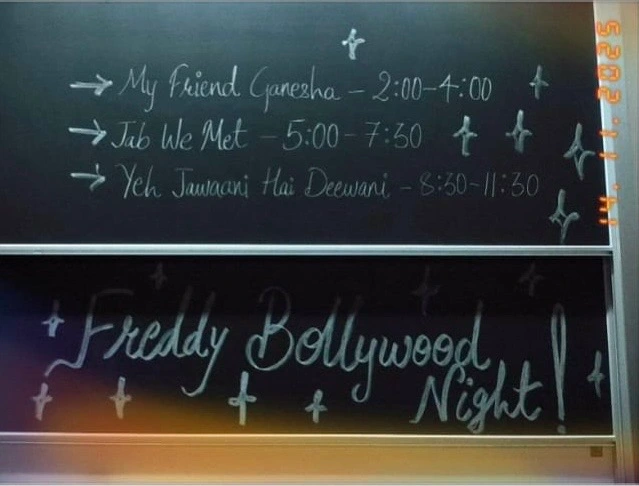 → My Friend Ganesha - 2:00-4:00
→ Jab We Met - 5:00 - 7:30
→ Yeh Jawaani Hai Deewani - 8:30-11:30
Freddy Bollywood
Night!
2025.11.14